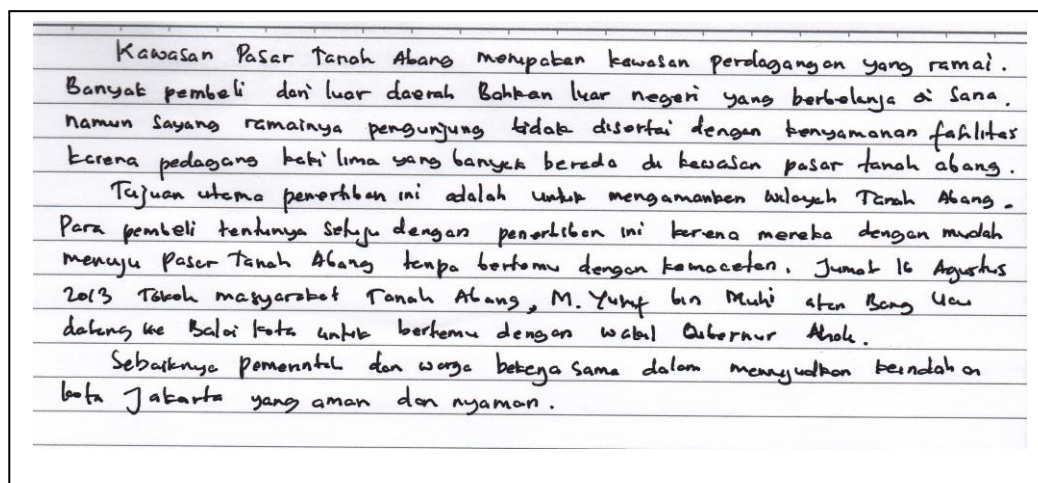 Kawasan Pasar Tanah Abang merupakan kawasan perdagangan yang ramai.
Banyak pembeli dari luar daerah Bahkan luar negeri yang berbelanja di sana.
namun sayang ramainya pengunjung tidak disertai dengan kenyamanan fasilitas
karena pedagang kaki lima yang banyak berada di kawasan pasar tanah abang.
Tujuan utama penertiban ini adalah untuk mengamankan wilayah Tanah Abang.
Para pembeli tentunya setuju dengan penertiban ini karena mereka dengan mudah
menuju Pasar Tanah Abang tanpa bertemu dengan kemacetan. Jumat 16 Agustus
2013 Tokoh masyarakat Tanah Abang, M. Yusuf bin Muhi atau Bang Ucu
datang ke Balai kota untuk bertemu dengan wakil Gubernur Ahok.
Sebaiknya pemerintah dan warga bekerja sama dalam mewujudkan keindahan
kota Jakarta yang aman dan nyaman.